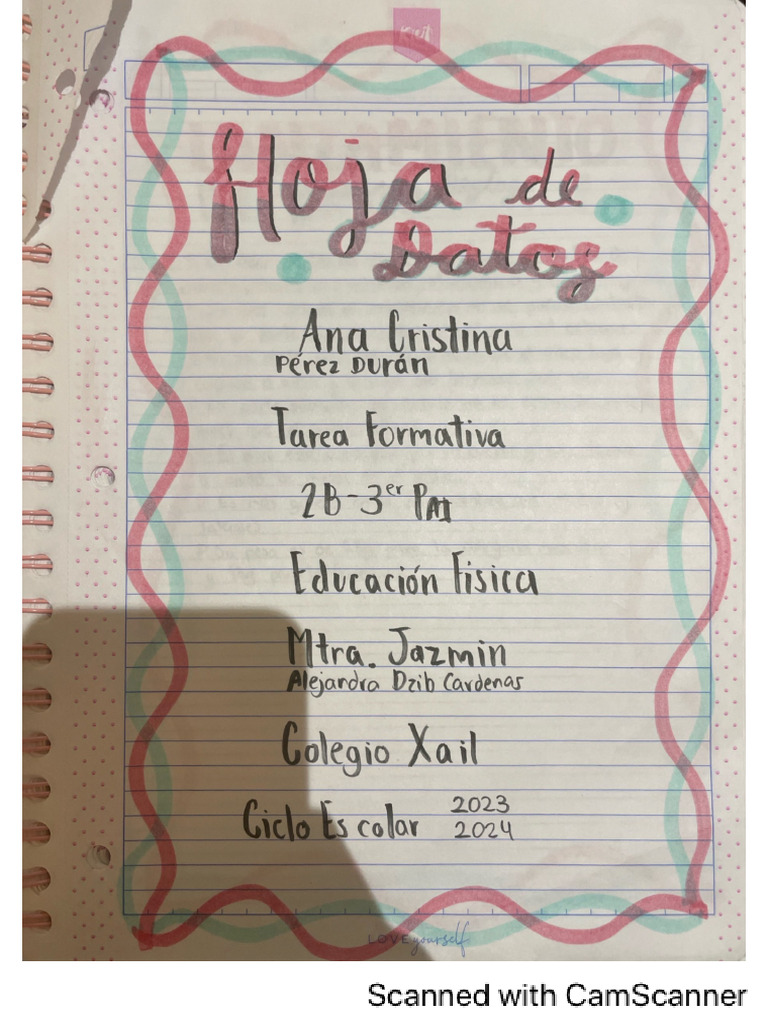 Hoja de
Datos
Ana Cristina
Pérez Durán
Tarea Formativa
2B-3er PAI
Educación Fisica
Mtra. Jazmin
Alejandra Dzib Cardenas
Colegio Xail
Ciclo Escolar 2023
2024
LOVE yourself
Scanned with CamScanner